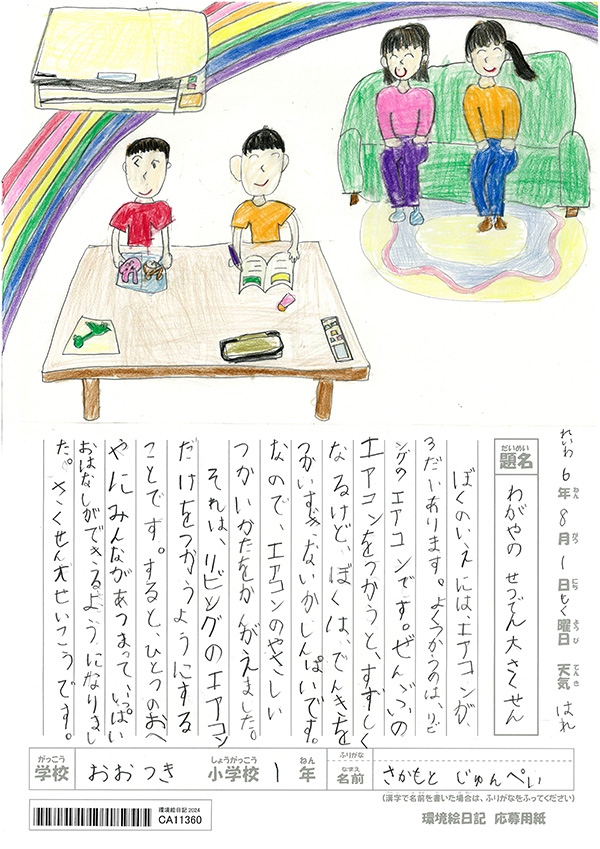 れいわ 6年 8月 1日 もく曜日 天気 はれ
ねん がつ にち よう び てんき
だいめい
題名 わがやの せつでん大さくせん
ぼくのいえには、エアコンが、
3だいあります。よくつかうのは、リビ
ングのエアコンです。ぜんぶの
エアコンをつかうと、すずしく
なるけど、ぼくは、でんきを
つかいすぎないかしんぱいです。
なので、エアコンのやさしい
つかいかたをかんがえました。
それは、リビングのエアコン
だけをつかうようにする
ことです。すると、ひとつのおへ
やにみんながあつまって、いっぱい
おはなしができるようになりまし
た。さくせん大せいこうです。
がっこう しょうがっこう ねん ふりがな なまえ
学校 おおつき 小学校 1年 名前 さかもと じゅんぺい
(漢字で名前を書いた場合は、ふりがなをふってください)
環境絵日記 2024
CA11360
環境絵日記 応募用紙